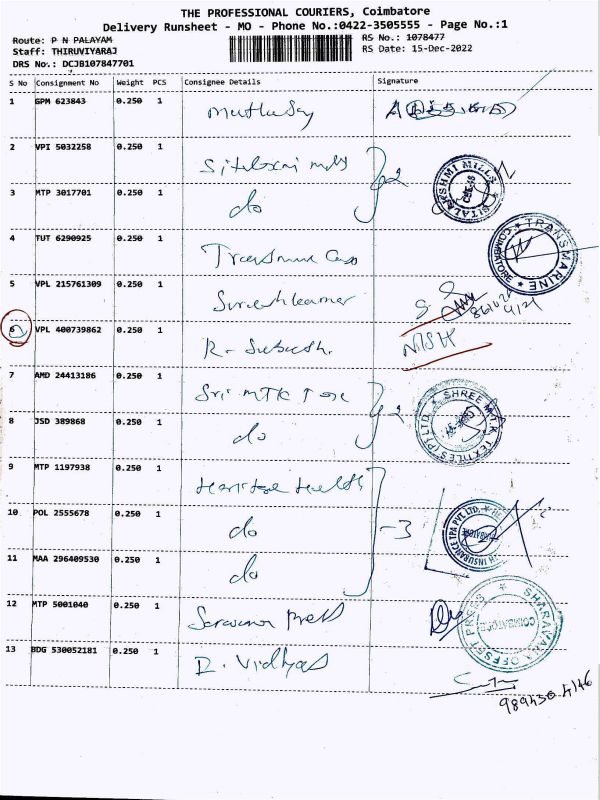 THE PROFESSIONAL COURIERS, Coimbatore
Delivery Runsheet - MO - Phone No.:0422-3505555 - Page No.:1
Route: P N PALAYAM
RS No.: 1078477
Staff: THIRUVIYARAJ
RS Date: 15-Dec-2022
DRS No.: DCJB107847701
S No Consignment No Weight PCS Consignee Details Signature
1 GPM 623843 0.250 1
2 VPI 5032258 0.250 1
SITALAKSHMI MILLS
3 MTP 3017701 0.250 1 do
4 TUT 6290925 0.250 1
TRANSMARINE COIMBATORE
5 VPL 215761309 0.250 1 Sureshkumar
6 VPL 400739862 0.250 1 R. Subash.
7 AMD 24413186 0.250 1 Sri MTK Tex
2
SHREE M.T.K TEXTILES (P) LTD.
8 JSD 389868 0.250 1 do
9 MTP 1197938 0.250 1 Heritage Health
10 POL 2555678 0.250 1 do
-3
INSURANCE TPA PVT LTD.
11 MAA 296409530 0.250 1 do
12 MTP 5001040 0.250 1 Saravana Press
SHARAVANA OFFSET PRESS COIMBATORE
13 BDG 530052181 0.250 1 R. Vidhya